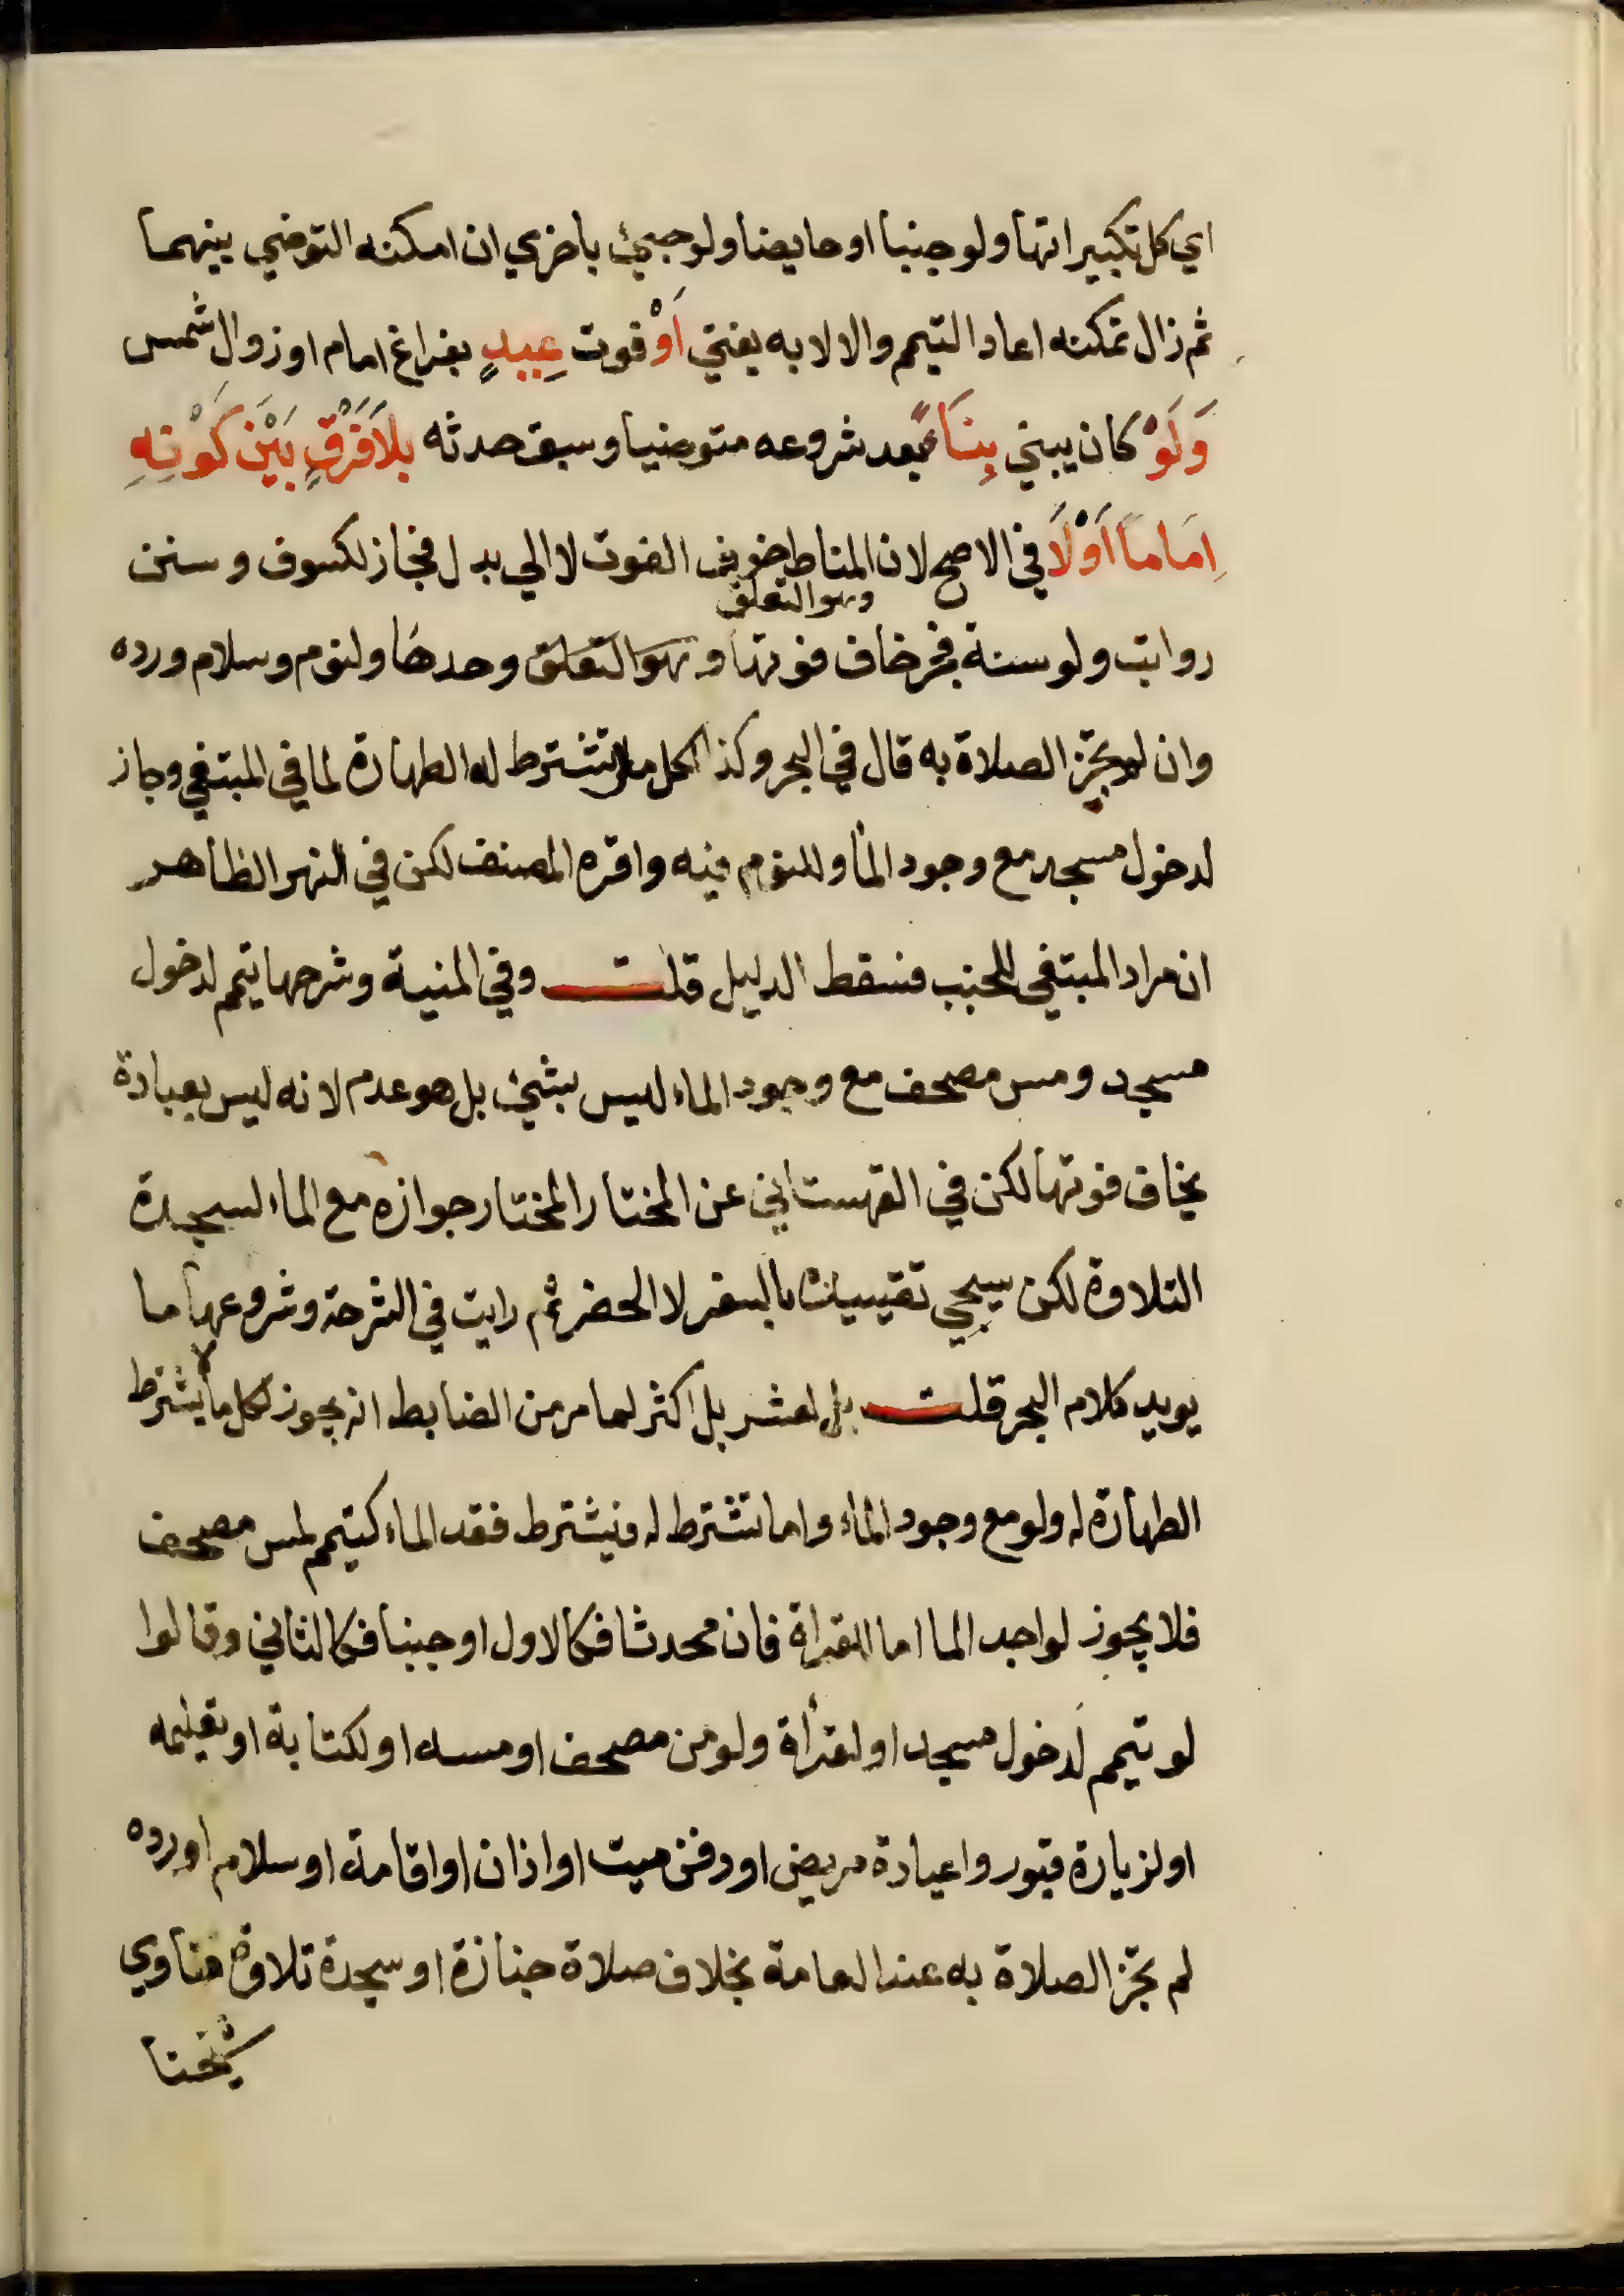 اي كل تكبيراتها ولو جنبا او حايضا ولو جيئ باخري ان امكنه التوضي بينهما
ثم زال تمكنه اعاد التيمم والا لا به يفتي اَوْ فوت عِيدٍ بفراغ امام او زوال شمس
وَلَوْ كان يبني بِنَاءً بعد شروعه متوضيا وسبق حدثه بِلَا فَرْقٍ بَيْنَ كَوْنِهِ
اِمَاماً اَوْلَا في الاصح لان المناط خوف الفوت لا الي بدل فجاز لكسوف وسنن
وهو التعلق
رواتب ولو سنة فجر خاف فوتها وهو التعلق وحدها ولنوم وسلام ورده
وان لم يجز الصلاة به قال في البحر وكذا لكل ما لا تشترط له الطهارة لما في المبتغي وجاز
لدخول مسجد مع وجود الما وللنوم فيه واقره المصنف لكن في النهر الظاهر
ان مراد المبتغي للجنب فسقط الدليل قلت وفي المنية وشرحها تيمم لدخول
مسجد ومس مصحف مع وجود الماء ليس بشئ بل هو عدم لانه ليس بعبادة
يخاف فوتها لكن في القهستاني عن المختار المختار جوازه مع الماء لسجدة
التلاوة لكن سيجي تقييدها بالسفر لا الحضر ثم رايت في الشرعة وشروعها ما
يويد كلام البحر قلت بل لعشر بل اكثر لما مر من الضابط انه يجوز لكل ما لا يشترط
الطهارة له ولو مع وجود الماء واما تشترط له فيشترط فقد الماء كتيمم لمس مصحف
فلا يجوز لواجد الما اما للقراة فان محدثا فكالاول او جنبا فكالثاني وقالوا
لو تيمم لدخول مسجد او لقرأة ولو من مصحف او مسه او لكتابة او تعليمه
او لزيارة قبور واعيادة مريض او دفن ميت او اذان او اقامة او سلام او رده
لم تجز الصلاة به عند العامة بخلاف صلاة جنازة او سجدة تلاوة فتاوي
شيخنا